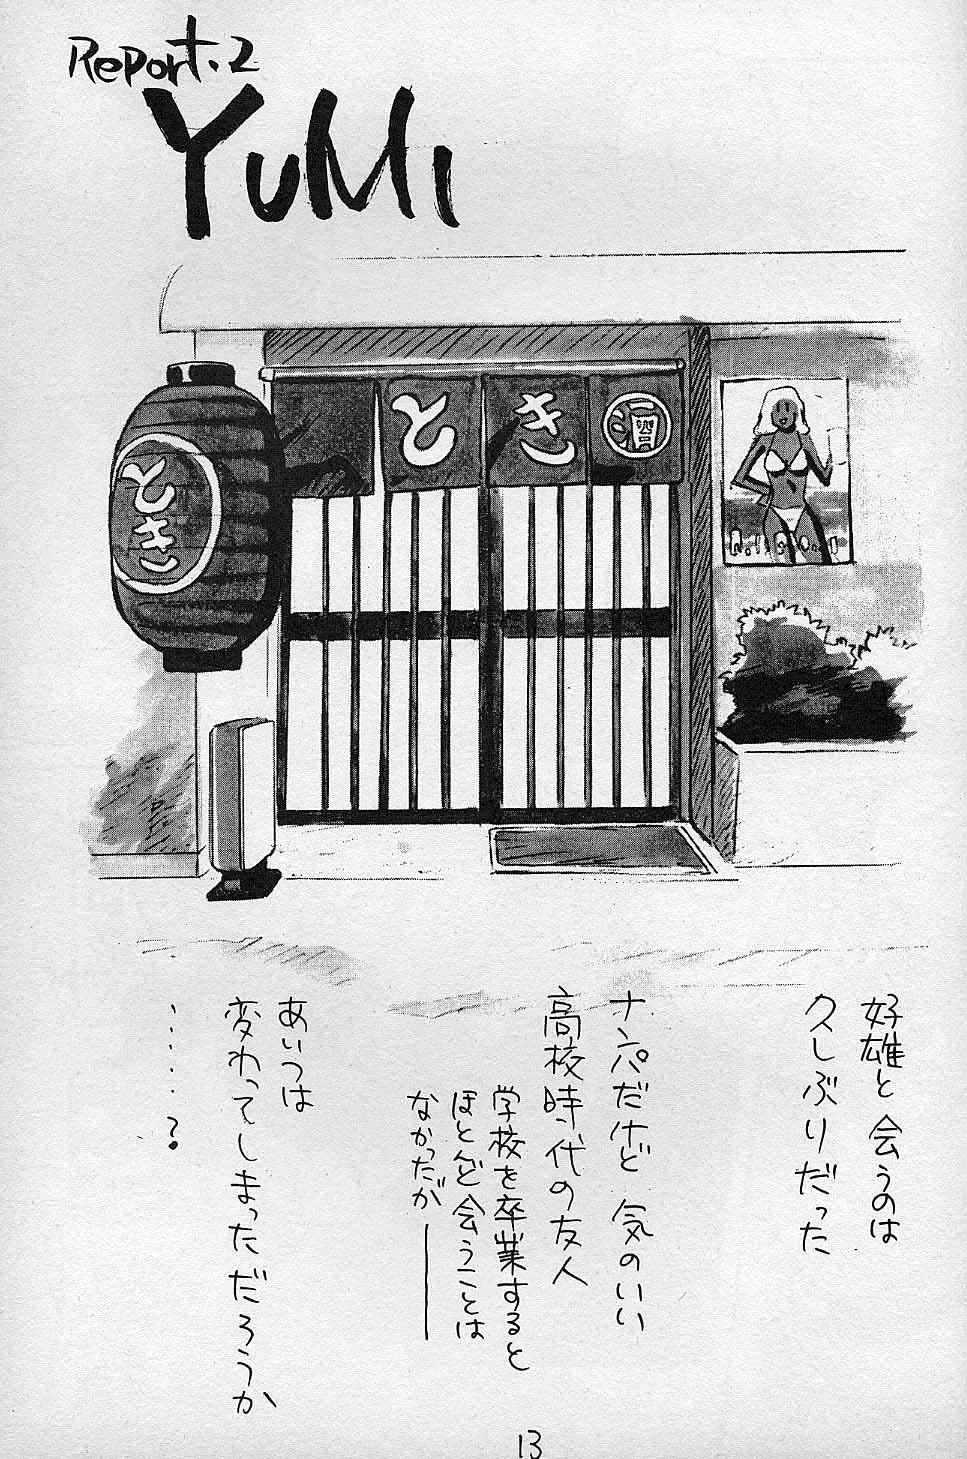 Report. 2
YUMI
とき
酒
とき
好雄と会うのは
久しぶりだった
ナンパだけど 気のいい
高校時代の友人
学校を卒業すると
ほとんど会うことは
なかっだか――
あいつは
変わってしまっただろうか
‥‥‥?
13